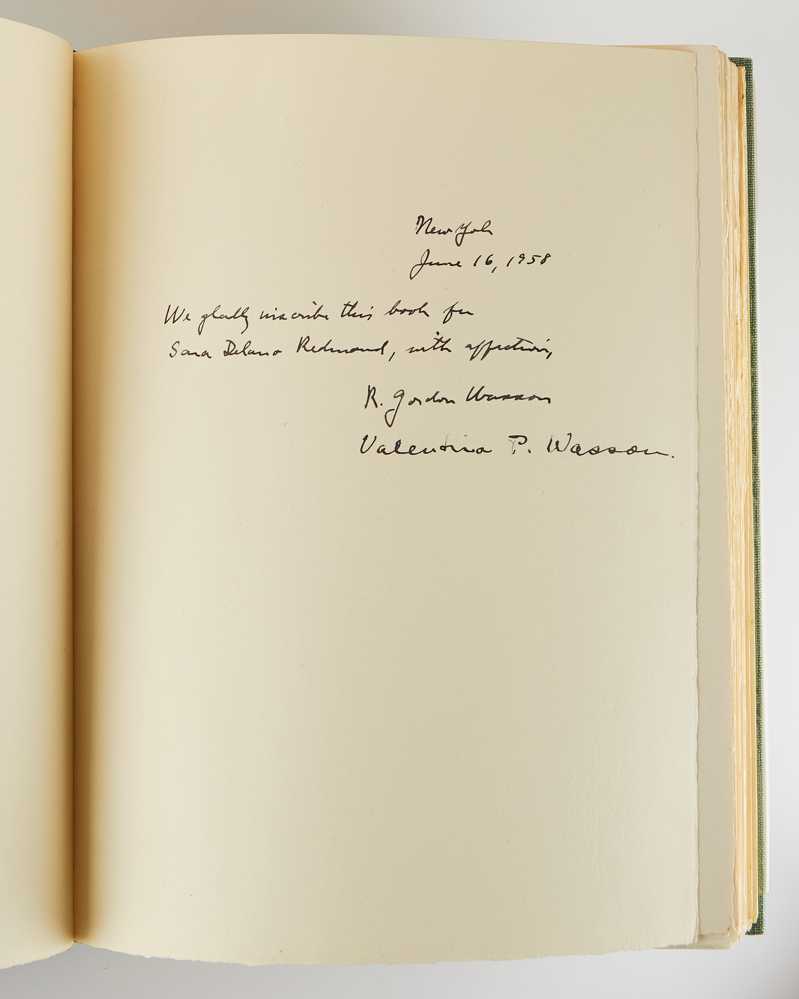 New York
June 16, 1958
We gladly inscribe this book for
Sara Delano Redmond, with affection,
R. Gordon Wasson
Valentina P. Wasson.